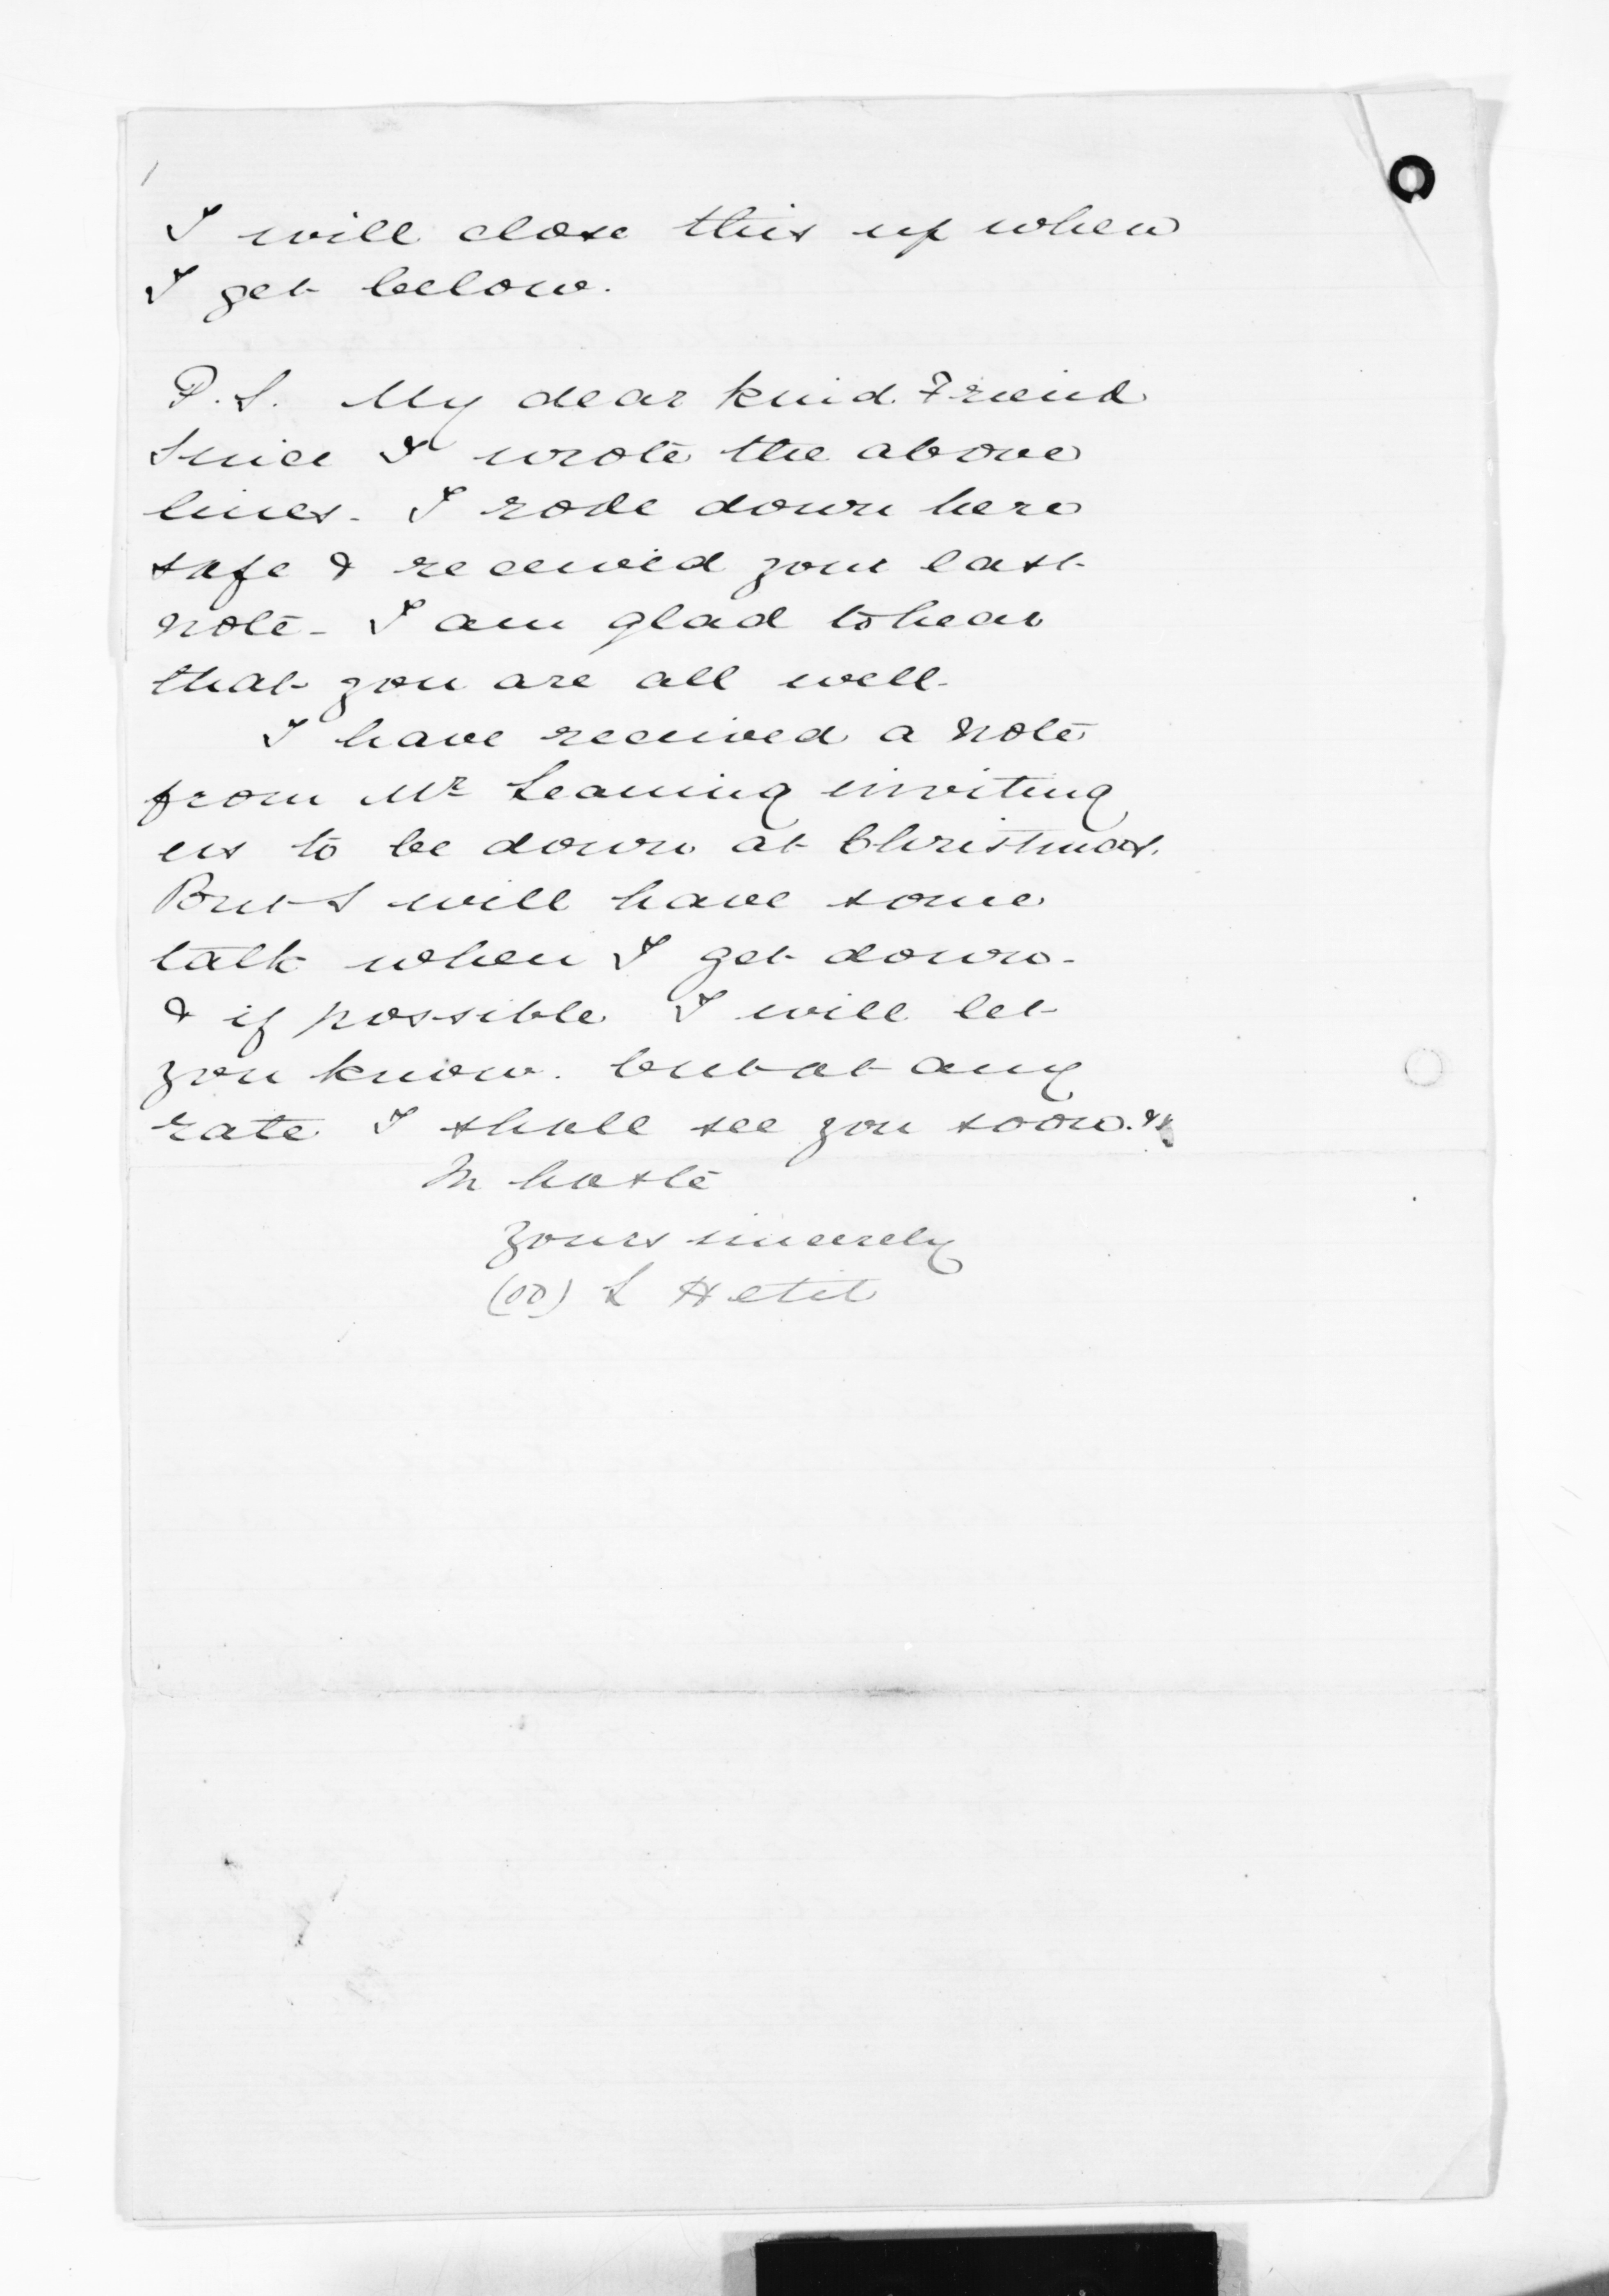 I will close this up when
I get below.
P.S. My dear kind Friend
Since I wrote the above
lines. I rode down here
safe & received your last
note - I am glad to hear
that you are all well -
I have received a note
from Mr Leaming inviting
us to be down at Christmas.
But I will have some
talk when I get down -
& if possible I will let
you know. but at any
rate I shall see you soon.
In haste
yours sincerely
L Hetit